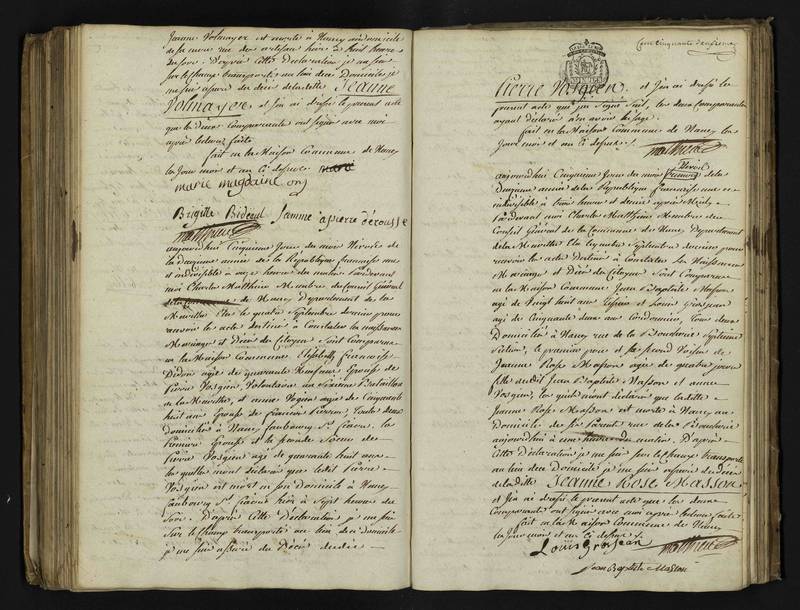 Jeanne Volmayer est morte à Nancy au domicile
de sa mere rue des artisans hier à huit heures
du soir. D'apres cette Declaration je me suis
sur le champ transporté au lieu dudit Domicile je
me suis assuré du décès de ladite Jeanne
Volmayer et j'en ai dressé le present acte
que les deux Comparantes ont signé avec moi
après lecture faite
fait en la Maison Commune de Nancy
les Jour mois et an ci dessus
marie magdelaine
Brigitte femme a pierre derousse
Matthieu
aujourdhui Cinquieme Jour du mois Nivose de
la deuxieme année de la Republique française une
et indivisible à onze heures du matin Pardevant
moi Charles Matthieu Membre du Conseil Général
de la Commune de Nancy Departement de la
Meurthe Elu le quatre Septembre dernier pour
recevoir les actes destinés à Constater les naissances
Mariages et Décès des Citoyens Sont Comparues
en la Maison Commune Elisabeth françoise
Didon agée de quarante neuf ans Epouse de
Pierre Vosgien Volontaire au Bataillon
de la Meurthe, et anne Vosgien agée de Cinquante
huit ans Epouse de françois Pierron, toutes deux
Domiciliées à Nancy faubourg St. Pierre la
Premiere Epouse et la seconde Soeur de
Pierre Vosgien agé de quarante huit ans
lesquelles m'ont declaré que ledit Pierre
Vosgien est mort en son Domicile à Nancy
faubourg St. Pierre hier à Sept heures du
Soir. D'apres cette Declaration je me suis
sur le champ transporté au lieu du domicile
je me suis assuré du Décès dudit
Cent Cinquante
Pierre Vosgien, et j'en ai dressé le
present acte que j'ai signé seul, les deux Comparantes
ayant declaré n'en avoir l'usage.
fait en la Maison Commune de Nancy les
Jour mois et an ci dessus.
Matthieu
Nivose
aujourdhui Cinquieme Jour du mois de la
Deuxieme année de la Republique française une et
indivisible à trois heures et demie après Midy
Pardevant moi Charles Matthieu Membre du
Conseil Général de la Commune de Nancy Departement
de la Meurthe Elu le quatre Septembre dernier pour
recevoir les actes destinés à Constater les Naissances
Mariages et Décès des Citoyens Sont Comparus
en la Maison Commune Jean Baptiste Masson
agé de Vingt huit ans et Louis Grosjean
agé de Cinquante deux ans Cordonnier, tous deux
Domiciliés à Nancy rue de la Septieme
Section, le premier pere et le second Voisin de
Jeanne Rose Masson agée de quatre jours
fille dudit Jean Baptiste Masson et anne
Vosgien, lesquels m'ont declaré que ladite
Jeanne Rose Masson est morte à Nancy au
Domicile de ses Parents rue de la
aujourdhui à onze heures du matin. D'après
cette Declaration je me suis sur le champ transporté
au lieu dudit Domicile je me suis assuré du décès
de ladite Jeanne Rose Masson
et j'en ai dressé le présent acte que les deux
Comparants ont signé avec moi après lecture faite
fait en la Maison Commune de Nancy
les Jour mois et an ci dessus.
Louis Grosjean Matthieu
Jean Baptiste Masson